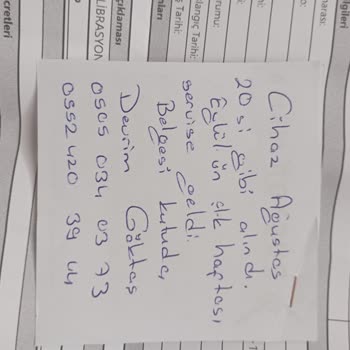 Cihaz Ağustos
20 si gibi alındı.
Eylül ün ilk haftası
servise geldi.
Belgesi kutuda,
Devrim Göktaş
0505 034 03 73
0552 420 39 44
ilgileri
urumu:
Tarihi:
çıklaması
LİBRASYON
cretleri